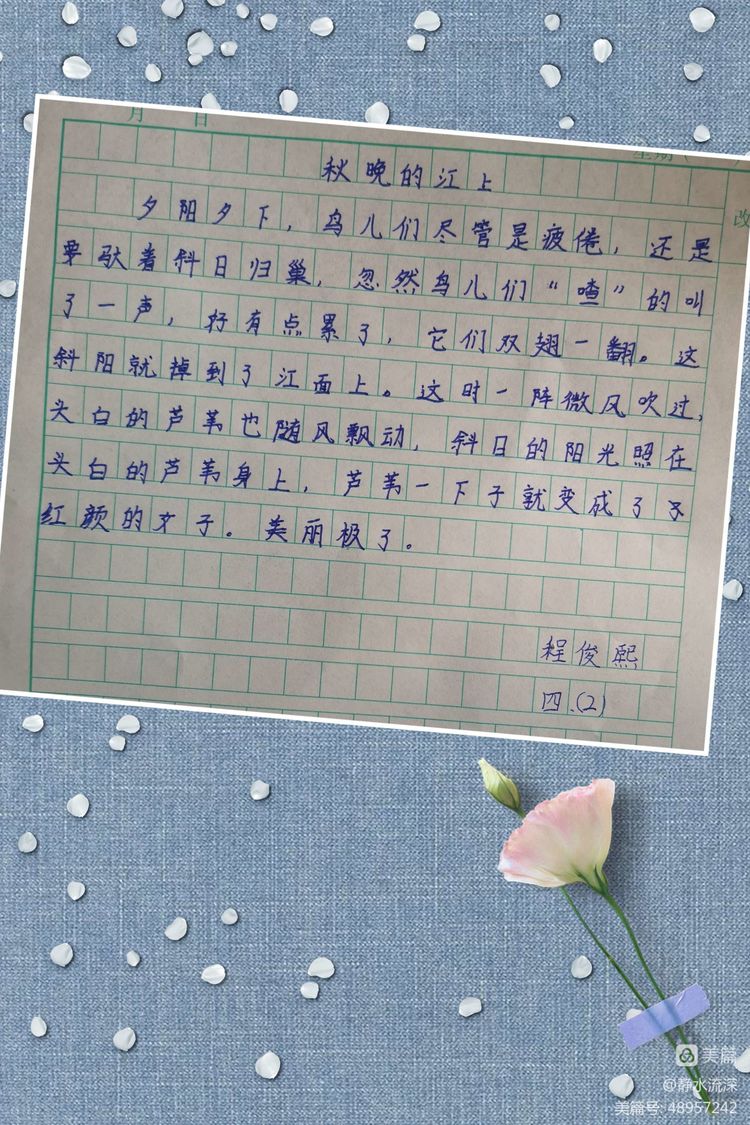 月 日
星期(
改
秋晚的江上
夕阳夕下，鸟儿们尽管是疲倦，还是
要驮着斜日归巢，忽然鸟儿们“喳”的叫
了一声，好有点累了，它们双翅一翻。这
斜阳就掉到了江面上。这时一阵微风吹过，
头白的芦苇也随风飘动，斜日的阳光照在
头白的芦苇身上，芦苇一下子就变成了
红颜的才子。美丽极了。
程俊熙
四.(2)
美篇
@静水流深
美篇号: 48957242